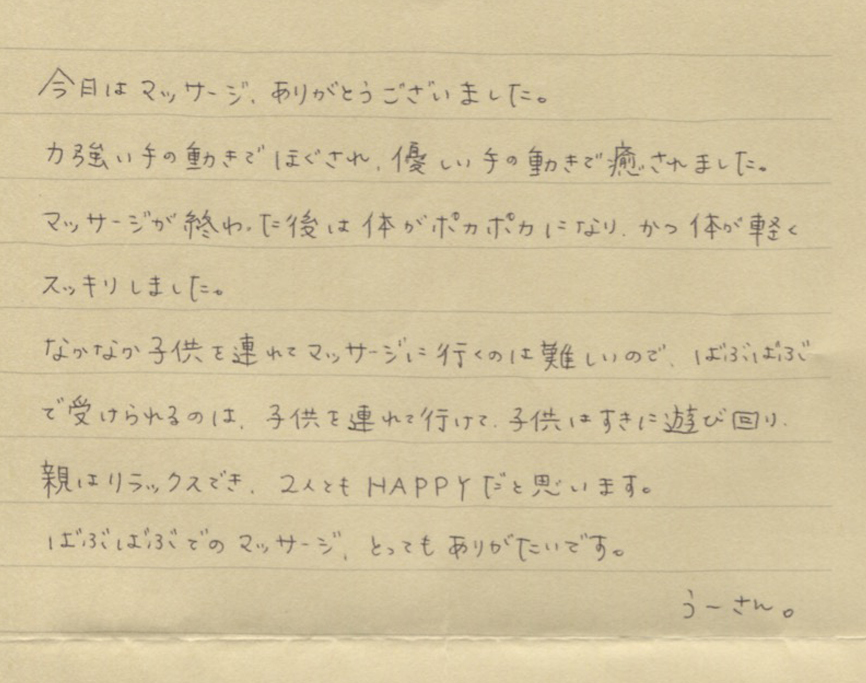 今月はマッサージ、ありがとうございました。
力強い手の動きでほぐされ、優しい手の動きで癒されました。
マッサージが終わった後は体がポカポカになり、かつ体が軽く
スッキリしました。
なかなか子供を連れてマッサージに行くのは難しいので、ばぶばぶ
で受けられるのは、子供を連れて行けて、子供はすきに遊び回り、
親はリラックスでき、2人ともHAPPYだと思います。
ばぶばぶでのマッサージ、とってもありがたいです。
うーさん。